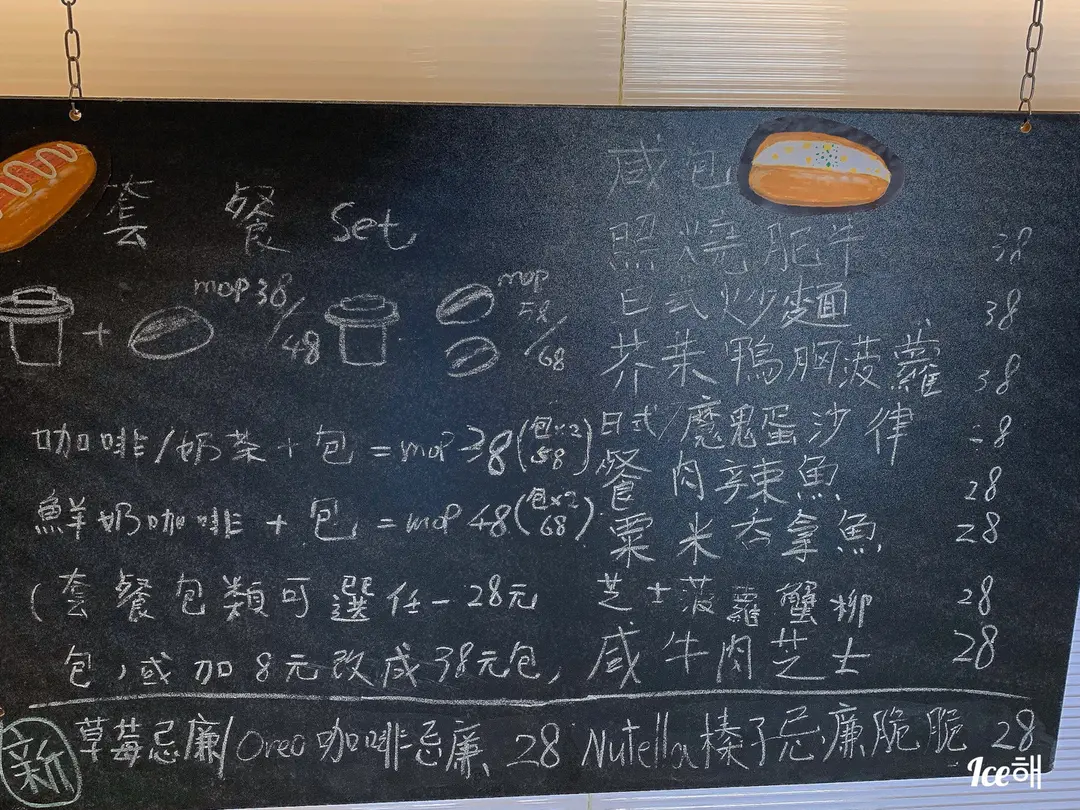 套餐 Set
mop 38/48
mop 58/68
咖啡/奶茶 + 包 = mop 38 (包x2 58)
鮮奶咖啡 + 包 = mop 48 (包x2 68)
(套餐包類可選任一28元
包,或加8元改成38元包,
咸包
照燒肥牛 38
日式炒麵 38
芥茉鴨胸菠蘿 38
日式/魔鬼蛋沙律 28
餐肉辣魚 28
粟米吞拿魚 28
芝士菠蘿蟹柳 28
咸牛肉芝士 28
新 草莓忌廉/Oreo咖啡忌廉 28 Nutella榛子忌廉脆脆 28
Ice해